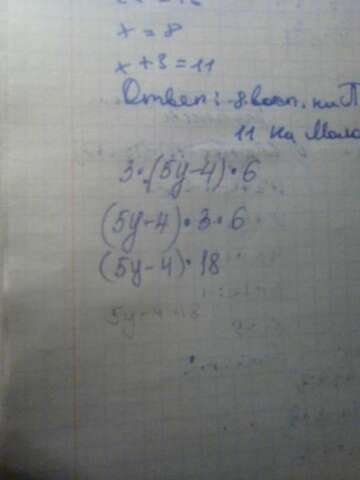 x = 8
x + 3 = 11
Ответ: 8 восп. на П
11 на
3·(5y-4)·6
(5y-4)·3·6
(5y-4)·18